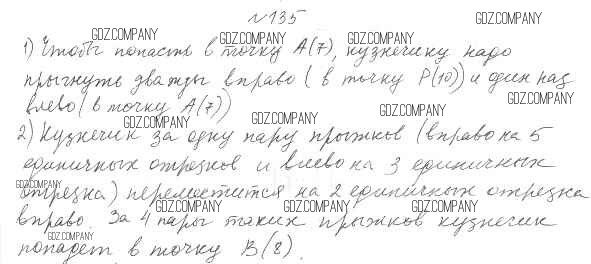 №135
GDZ.COMPANY
GDZ.COMPANY GDZ.COMPANY
1) Чтобы попасть в точку A(7), кузнечику надо
прыгнуть дважды вправо (в точку P(10)) и один раз
GDZ.COMPANY GDZ.COMPANY
влево (в точку A(7))
GDZ.COMPANY GDZ.COMPANY GDZ.COMPANY
2) Кузнечик за одну пару прыжков (вправо на 5
единичных отрезков и влево на 3 единичных
GDZ.COMPANY
отрезка) переместится на 2 единичных отрезка
GDZ.COMPANY GDZ.COMPANY GDZ.COMPANY
вправо. За 4 пары таких прыжков кузнечик
GDZ.COMPANY
попадет в точку B(8).